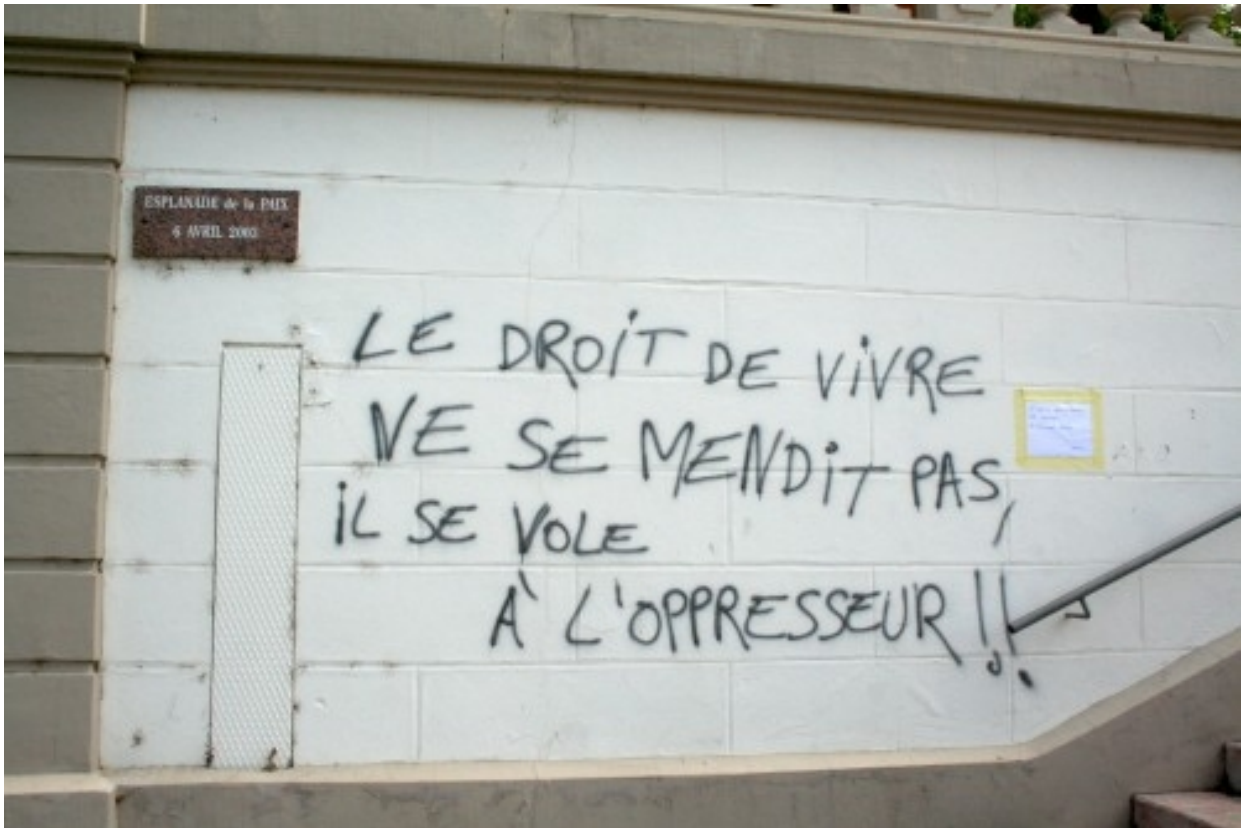 ESPLANADE de la PAIX
6 AVRIL 2003
LE DROIT DE VIVRE
NE SE MENDIT PAS,
IL SE VOLE
À L'OPPRESSEUR !!